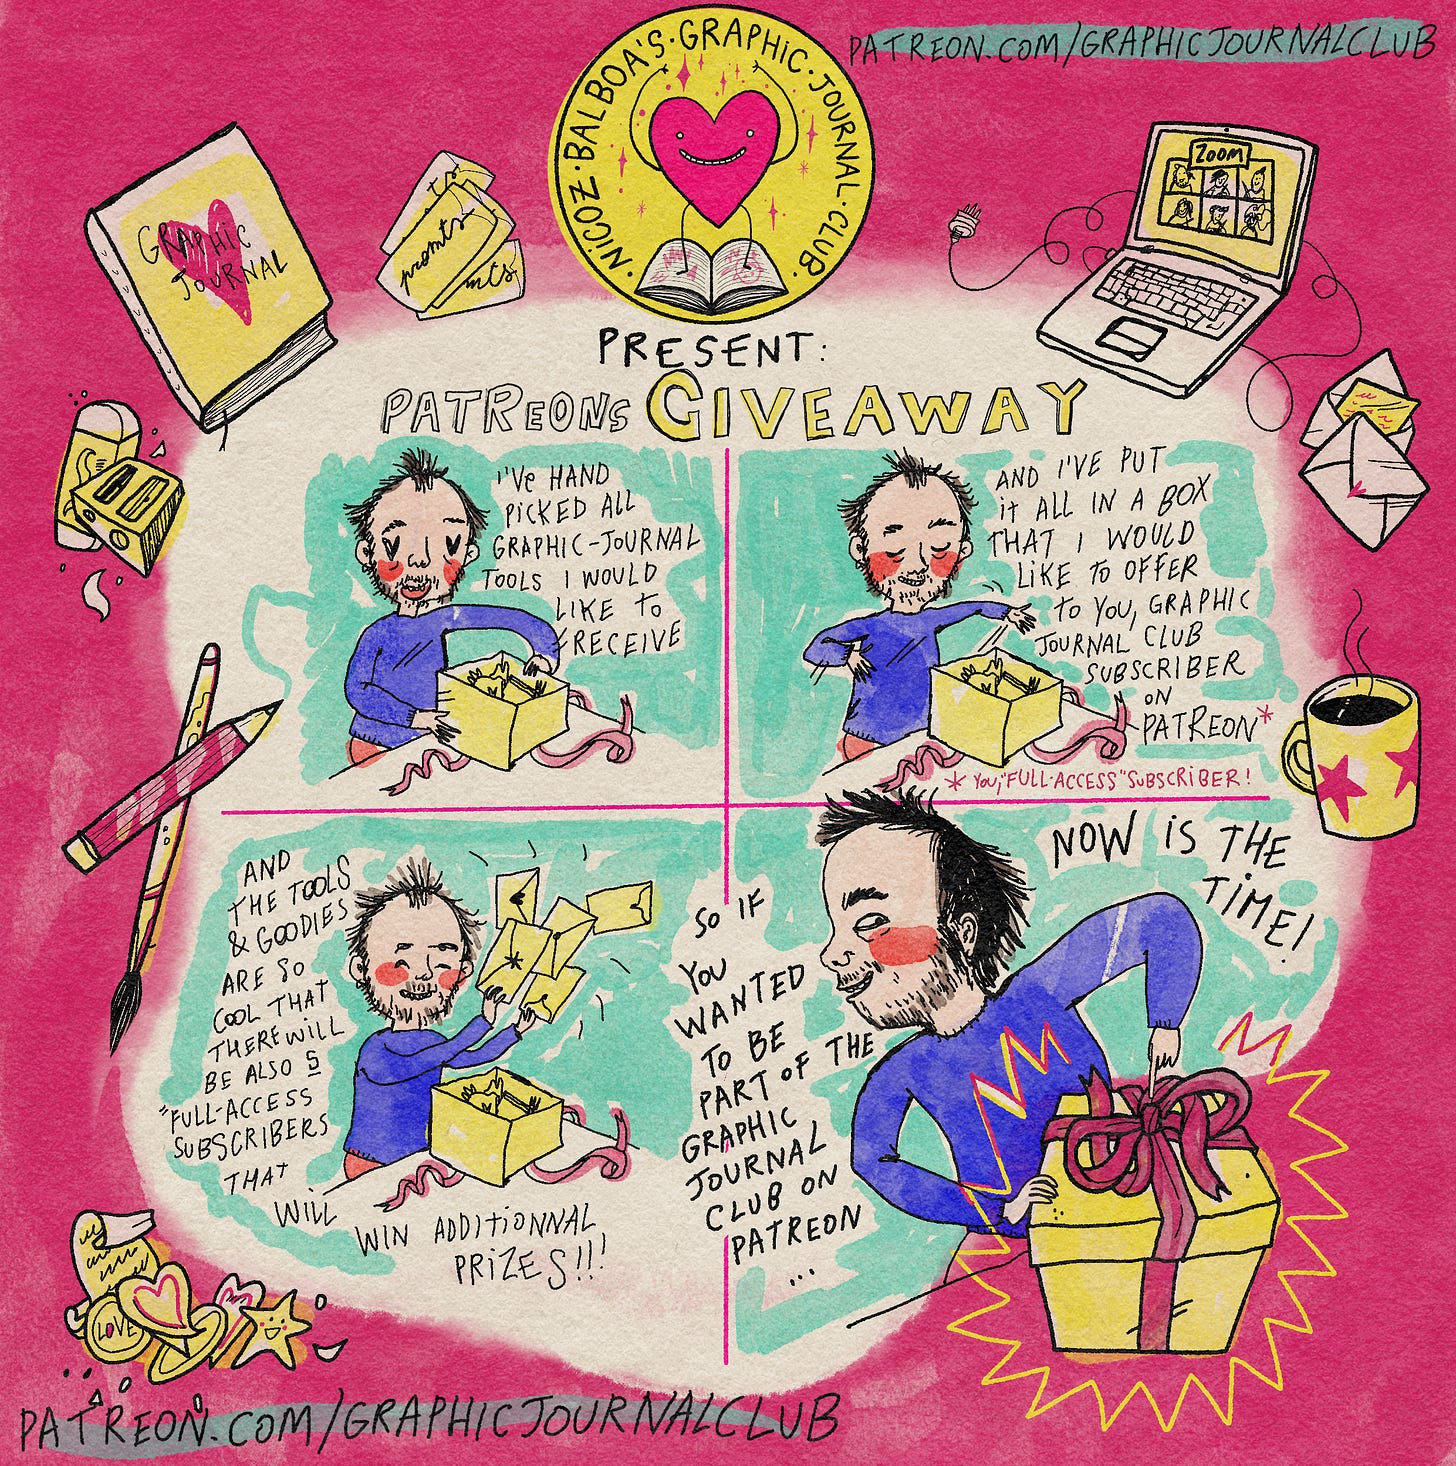 PATREON.COM/GRAPHICJOURNALCLUB
·NicOZ·BALBOA'S·GRAPHiC·JOURNAL·CLUB·
GRAPHIC
JOURNAL
promts
mts
ZOOM
PRESENT:
PATREONS GIVEAWAY
I'Ve HAND
PiCKED ALL
GRAPHIC-JOURNAL
TOOLS I WOULD
LIKE To
RECEIVE
AND I'VE PUT
iT ALL IN A BOX
THAT I WOULD
LiKE To OFFER
To YOU, GRAPHIC
JOURNAL CLUB
SUBSCRIBER
ON
PATREON*
* You, "FULL-ACCESS" SUBSCRiBER!
AND
THE TOOLS
& GOODIES
ARE SO
COOL THAT
THERE WILL
BE ALSO 5
"FULL-ACCESS
SUBSCRIBERS
THAT
WiLL
WIN ADDiTiONNAL
PRiZES!!!
SO IF
YOU
WANTED
TO BE
PART OF THE
GRAPHIC
JOURNAL
CLUB ON
PATREON
...
NOW iS THE
TiME!
LOVE
PATREON.COM/GRAPHICJOURNALCLUB